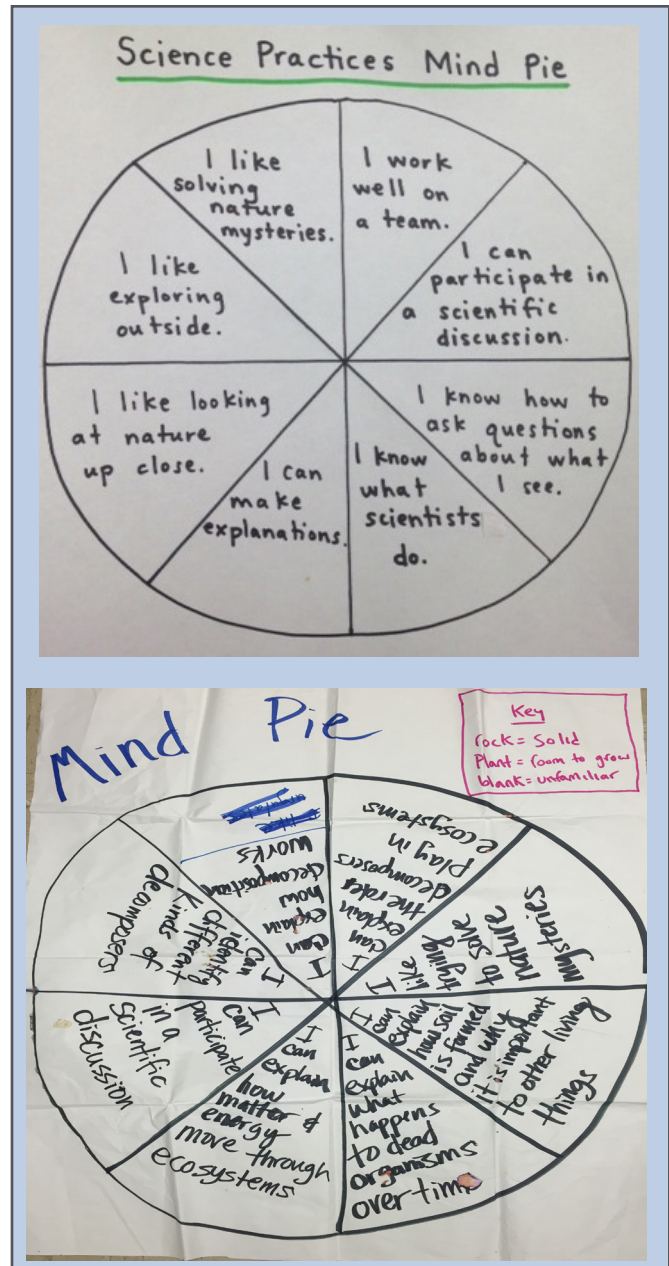 Science Practices Mind Pie
I like
solving
nature
mysteries.
I work
well on
a team.
I can
participate in
a scientific
discussion.
I know how to
ask questions
about what
I see.
I know
what
scientists
do.
I can
make
explanations.
I like looking
at nature
up close.
I like
exploring
outside.
Mind Pie
Key
rock = Solid
Plant = room to grow
blank = unfamiliar
I
can
explain
how
decomposition
works
I
can
explain
the roles
decomposers
play in
ecosystems
I
like
trying
to solve
nature
mysteries
I
can
explain
how soil
is formed
and why
it is important
to other living
things
I
can
explain
what
happens
to dead
organisms
over time
I
can
explain
how
matter &
energy
move through
ecosystems
I
can
participate
in a
scientific
discussion
I
can
identify
different
kinds of
decomposers